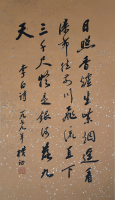 日照香炉生紫烟遥看
瀑布挂前川飞流直下
三千尺疑是银河落九
天
李白诗 一九七九年 朴初